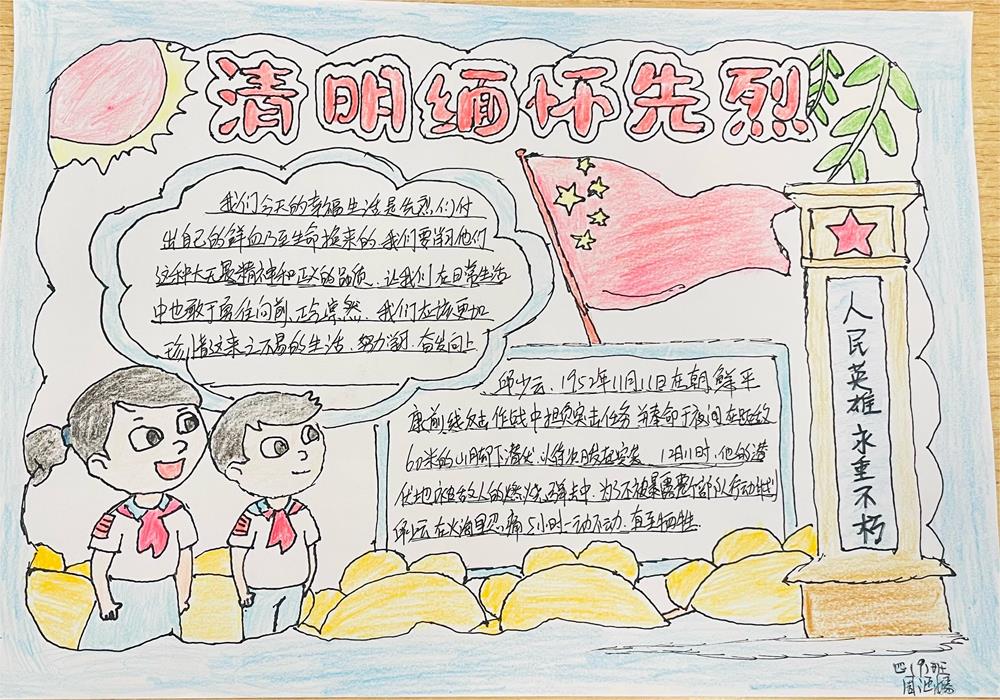 清明缅怀先烈
我们今天的幸福生活是先烈们付
出自己的鲜血乃至生命换来的.我们要学习他们
这种大无畏精神和正义的品质.让我们在日常生活
中也敢于勇往向前.我们应该更加
珍惜这来之不易的生活.努力学习.奋发向上
邱少云.1952年11月11日在朝鲜平
康前线反击作战中担负突击任务并奉命于夜间在距敌
60米的山脚下潜伏.以待次日发起突袭 12日11时.他的潜
伏地被敌人的燃烧弹击中.为了不被暴露整个部队行动计划
邱少云在火海里忍痛5小时一动不动.直至牺牲.
人民英雄永垂不朽
四(9)班
周